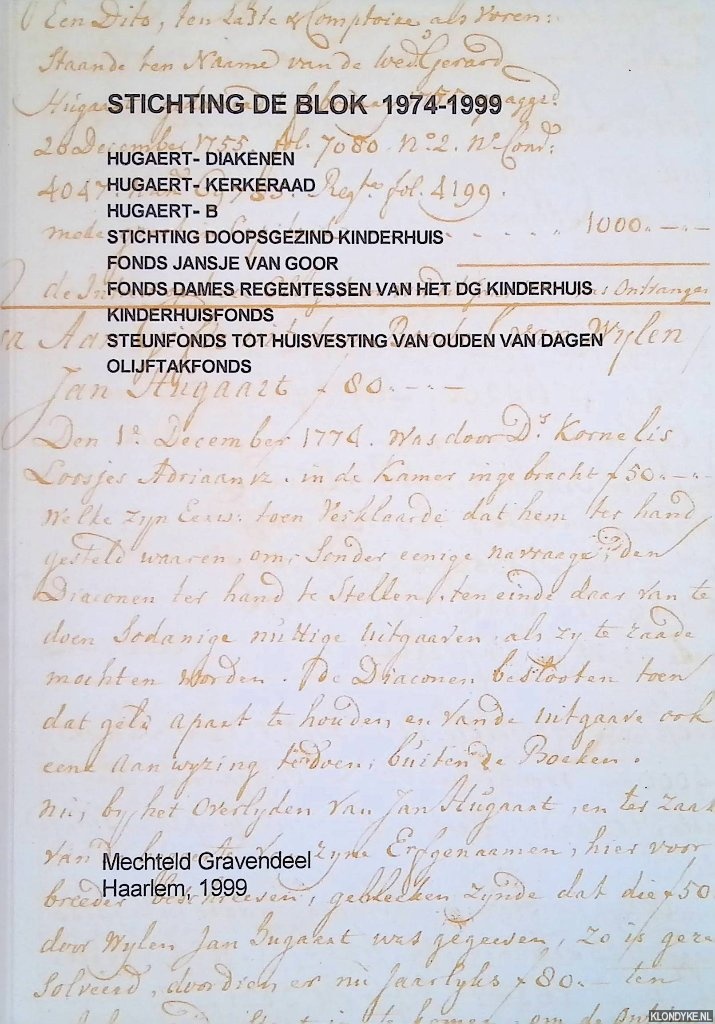 Een Dito, ten Laste Comptoire als voren:
Staande ten Naame van de wed. Gerard
STICHTING DE BLOK 1974-1999
20 December 1755. fol. 7080. No 2. No Cond:
HUGAERT- DIAKENEN
HUGAERT- KERKERAAD
4047. Regte. fol. 4199.
HUGAERT- B
mede 1000.
STICHTING DOOPSGEZIND KINDERHUIS
FONDS JANSJE VAN GOOR
FONDS DAMES REGENTESSEN VAN HET DG KINDERHUIS
KINDERHUISFONDS
STEUNFONDS TOT HUISVESTING VAN OUDEN VAN DAGEN
OLIJFTAKFONDS
Jan Hugaart f 80.--
Den 1e. December 1774. Was door Ds. Kornelis
Loosjes Adriaansz. in de Kamer ingebracht f 50.--
welke zyn Eerw: toen Verklaarde dat hem ter hand
gesteld waaren, om, Sonder eenige navraage, den
Diaconen ter hand te Stellen, ten einde daar van te
doen Sodanige nuttige uitgaaven, als zy te raade
mochten worden. De Diaconen beslooten toen
dat gelt apart te houden, en vande uitgaave ook
eene aanwyzing te doen, buiten de Boeken.
nu, by het Overlyden van Jan Hugaart, en ter zaak
van zyne Erfgenaamen, hier voor
Mechteld Gravendeel
Haarlem, 1999
breeder beschreeven, gebleeken zynde dat die f 50
door Wylen Jan Hugaart was gegeeven, zo is gere
solveerd, dvordien er nu Jaarlyks f 80.- ten
om de
KLONDYKE.NL